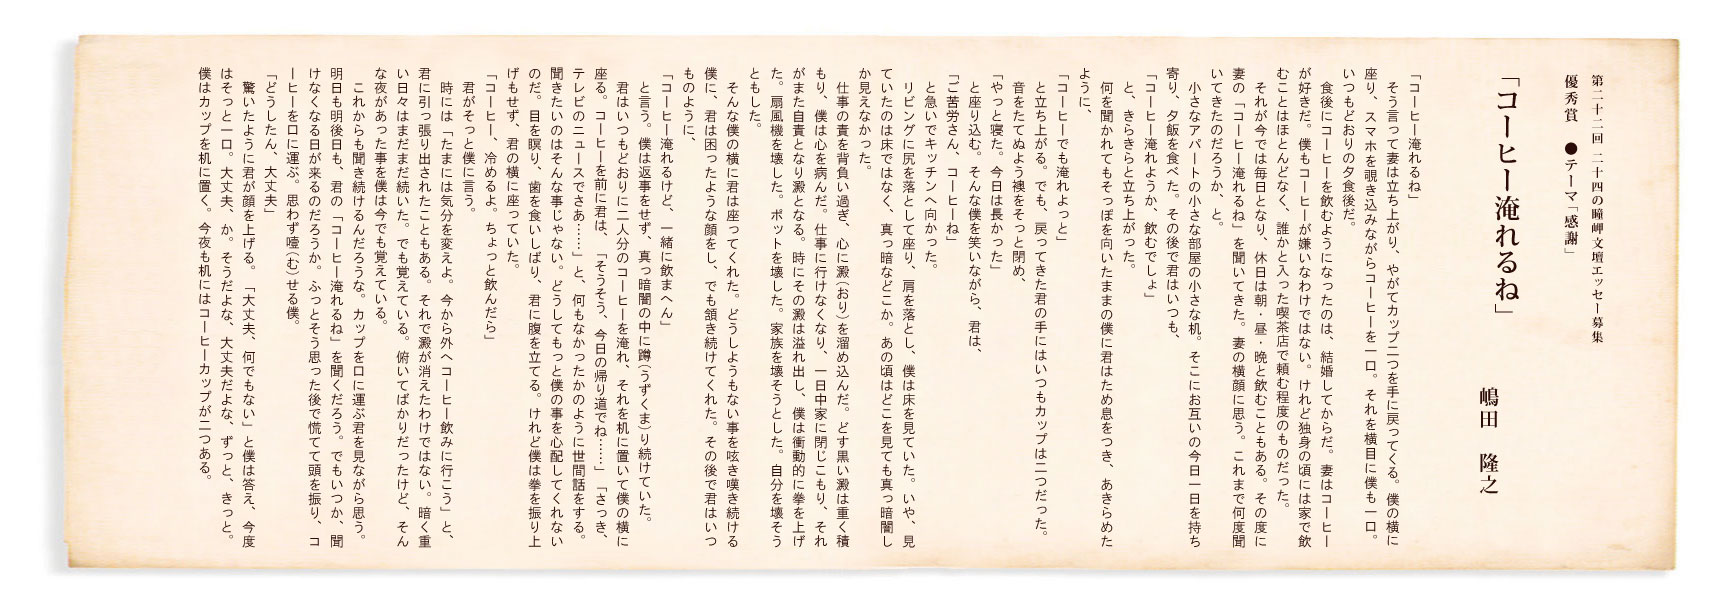 第二十二回 二十四の瞳岬文壇エッセー募集
優秀賞 ●テーマ「感謝」
「コーヒー淹れるね」
嶋田 隆之
「コーヒー淹れるね」
そう言って妻は立ち上がり、やがてカップ二つを手に戻ってくる。僕の横に
座り、スマホを覗き込みながらコーヒーを一口。それを横目に僕も一口。
いつもどおりの夕食後だ。
食後にコーヒーを飲むようになったのは、結婚してからだ。妻はコーヒー
が好きだ。僕もコーヒーが嫌いなわけではない。けれど独身の頃には家で飲
むことはほとんどなく、誰かと入った喫茶店で頼む程度のものだった。
それが今では毎日となり、休日は朝・昼・晩と飲むこともある。その度に
妻の「コーヒー淹れるね」を聞いてきた。妻の横顔に思う。これまで何度聞
いてきたのだろうか、と。
小さなアパートの小さな部屋の小さな机。そこにお互いの今日一日を持ち
寄り、夕飯を食べた。その後で君はいつも、
「コーヒー淹れようか、飲むでしょ」
と、きらきらと立ち上がった。
何を聞かれてもそっぽを向いたままの僕に君はため息をつき、あきらめた
ように、
「コーヒーでも淹れよっと」
と立ち上がる。でも、戻ってきた君の手にはいつもカップは二つだった。
音をたてぬよう襖をそっと閉め、
「やっと寝た。今日は長かった」
と座り込む。そんな僕を笑いながら、君は、
「ご苦労さん、コーヒーね」
と急いでキッチンへ向かった。
リビングに尻を落として座り、肩を落とし、僕は床を見ていた。いや、見
ていたのは床ではなく、真っ暗などこか。あの頃はどこを見ても真っ暗闇し
か見えなかった。
仕事の責を背負い過ぎ、心に澱(おり)を溜め込んだ。どす黒い澱は重く積
もり、僕は心を病んだ。仕事に行けなくなり、一日中家に閉じこもり、それ
がまた自責となり澱となる。時にその澱は溢れ出し、僕は衝動的に拳を上げ
た。扇風機を壊した。ポットを壊した。家族を壊そうとした。自分を壊そう
ともした。
そんな僕の横に君は座ってくれた。どうしようもない事を呟き嘆き続ける
僕に、君は困ったような顔をし、でも頷き続けてくれた。その後で君はいつ
ものように、
「コーヒー淹れるけど、一緒に飲まへん」
と言う。僕は返事をせず、真っ暗闇の中に蹲(うずくま)り続けていた。
君はいつもどおりに二人分のコーヒーを淹れ、それを机に置いて僕の横に
座る。コーヒーを前に君は、「そうそう、今日の帰り道でね……」「さっき、
テレビのニュースでさあ……」と、何もなかったかのように世間話をする。
聞きたいのはそんな事じゃない。どうしてもっと僕の事を心配してくれない
のだ。目を瞑り、歯を食いしばり、君に腹を立てる。けれど僕は拳を振り上
げもせず、君の横に座っていた。
「コーヒー、冷めるよ。ちょっと飲んだら」
君がそっと僕に言う。
時には「たまには気分を変えよ。今から外へコーヒー飲みに行こう」と、
君に引っ張り出されたこともある。それで澱が消えたわけではない。暗く重
い日々はまだまだ続いた。でも覚えている。俯いてばかりだったけど、そん
な夜があった事を僕は今でも覚えている。
これからも聞き続けるんだろうな。カップを口に運ぶ君を見ながら思う。
明日も明後日も、君の「コーヒー淹れるね」を聞くだろう。でもいつか、聞
けなくなる日が来るのだろうか。ふっとそう思った後で慌てて頭を振り、コ
ーヒーを口に運ぶ。思わず噎(む)せる僕。
「どうしたん、大丈夫」
驚いたように君が顔を上げる。「大丈夫、何でもない」と僕は答え、今度
はそっと一口。大丈夫、か。そうだよな、大丈夫だよな、ずっと、きっと。
僕はカップを机に置く。今夜も机にはコーヒーカップが二つある。